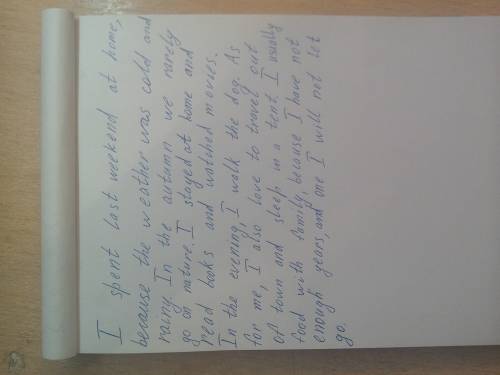 I spent last weekend at home,
because the weather was cold and
rainy. In the autumn we rarely
go on nature. I stayed at home and
read books and watched movies.
In the evening, I walk the dog. As
for me, I also love to travel out
of town and sleep in a tent. I usually
food with family, because I have not
enough years, and one I will not let
go.